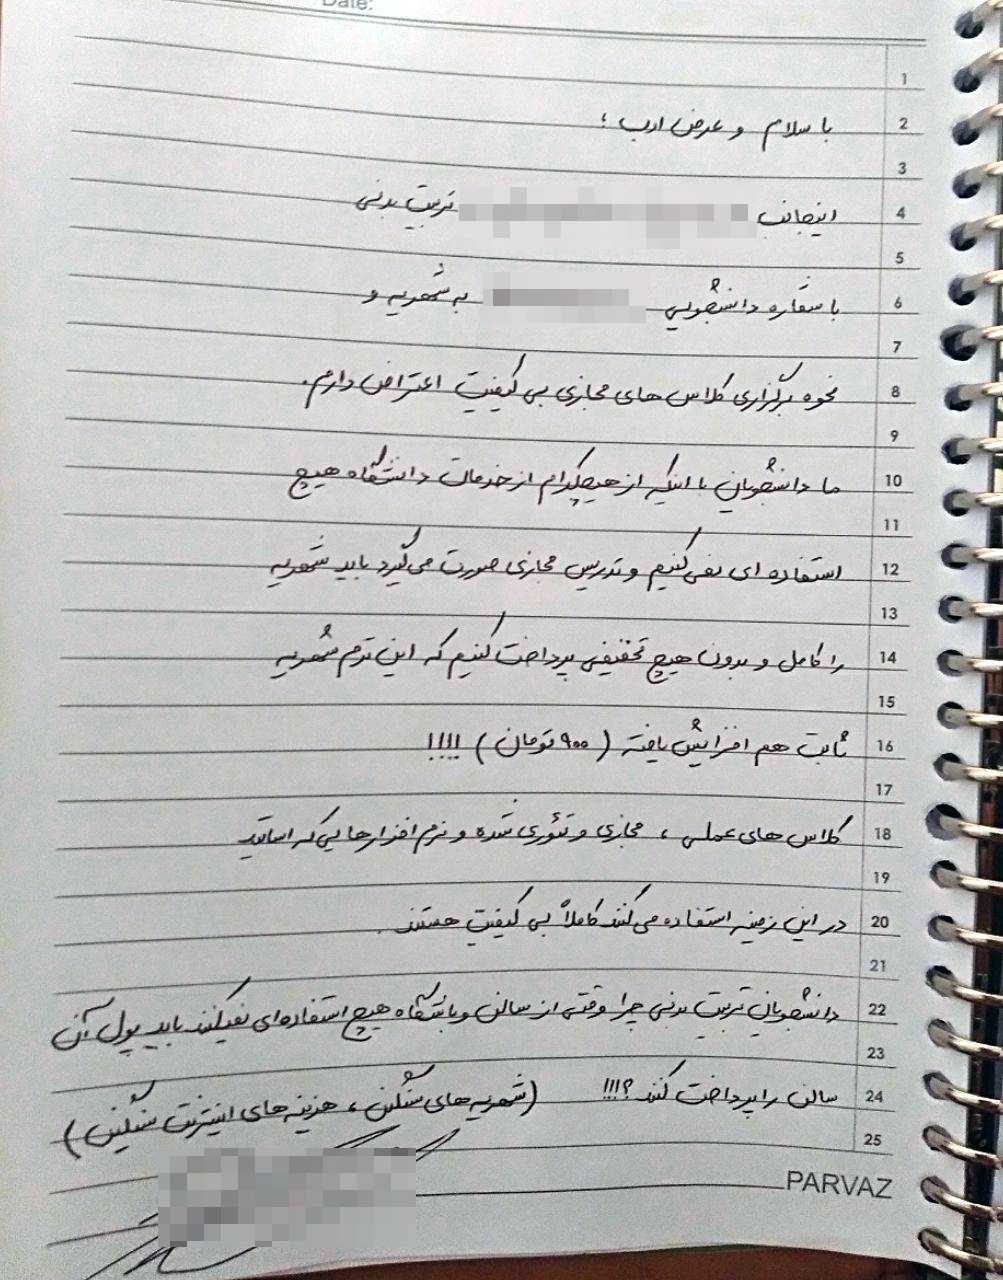 Date:
1
2 با سلام و عرض ادب ؛
3
4 اینجانب تربیت بدنی
5
6 با شماره دانشجویی به شهریه و
7
8 نحوه برگزاری کلاس های مجازی بی کیفیت اعتراض دارم.
9
10 ما دانشجویان با اینکه از هیچکدام از خدمات دانشگاه هیچ
11
12 استفاده ای نمی کنیم و تدریس مجازی صورت می گیرد باید شهریه
13
14 را کامل و بدون هیچ تخفیفی پرداخت کنیم که این ترم شهریه
15
16 ثابت هم افزایش یافته ( ۹۰۰ تومان ) !!!!
17
18 کلاس های عملی ، مجازی و تئوری شده و نرم افزارهایی که اساتید
19
20 در این زمینه استفاده می کنند کاملاً بی کیفیت هستند.
21
22 دانشجویان تربیت بدنی چرا وقتی از سالن و باشگاه هیچ استفاده ای نمیکنند باید پول آن
23
24 سالن را پرداخت کنند ؟!!!! (شهریه های سنگین ، هزینه های اینترنت سنگین )
25
PARVAZ